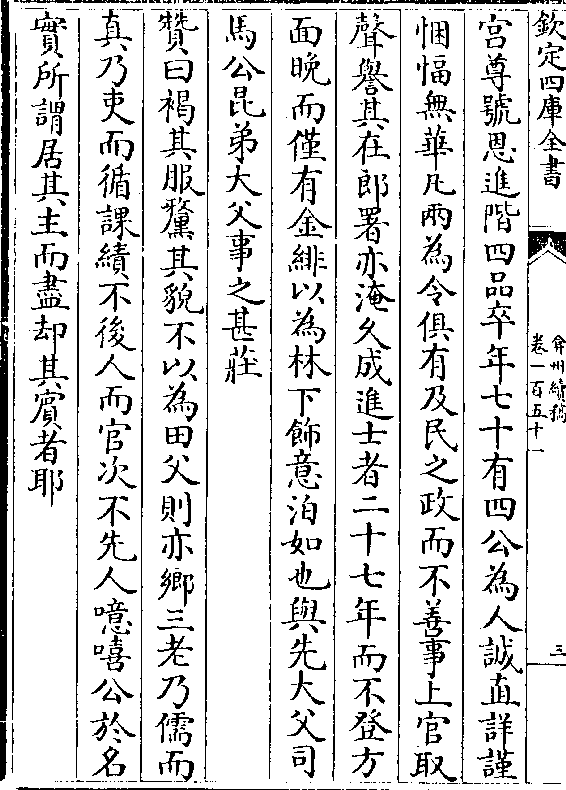 欽定四庫全書
弇州續稿
卷一百五十一
三
宫尊號恩進階四品卒年七十有四公為人誠直詳謹
悃愊無華凡兩為令俱有及民之政而不善事上官取
聲譽其在郎署亦淹久成進士者二十七年而不登方
面晚而僅有金緋以為林下飾意泊如也與先大父司
馬公昆弟大父事之甚莊
贊曰褐其服黧其貌不以為田父則亦鄉三老乃儒而
真乃吏而循課績不後人而官次不先人噫嘻公於名
實所謂居其主而盡却其賓者耶